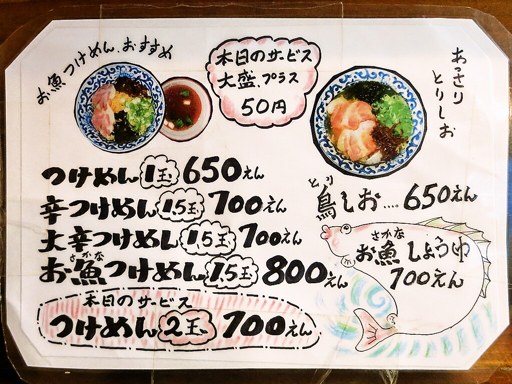 お魚つけめん、おすすめ
本日のサービス
大盛、プラス
50円
あっさり
とりしお
つけめん 1玉 650えん
辛つけめん 1.5玉 700えん
大辛つけめん 1.5玉 700えん
さかな
お魚つけめん 1.5玉 800えん
本日のサービス
つけめん 2玉 700えん
とり
鳥しお.... 650えん
さかな
お魚しょうゆ
700えん